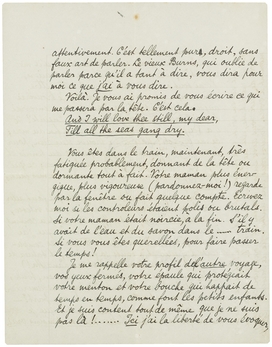 attentivement. C'est tellement pur, droit, sans
faux art de parler. Le vieux Burns, qui oublie de
parler parce qu'il a tant à dire, vous dira pour
moi ce que j'ai à vous dire.
Voilà. Je vous ai promis de vous écrire ce qui
me passera par la tête. C'est cela
And I will love thee still, my dear,
Till all the seas gang dry.
Vous êtes dans le train, maintenant, très
fatiguée probablement, donnant de la tête ou
dormante tout à fait. Votre maman plus éner-
gique, plus vigoureuse (pardonnez-moi!) regarde
par la fenêtre ou fait quelque compte. Ecrivez
moi si les controleurs étaient polis ou brutals.
Si votre maman était noircie, à la fin. S'il y
avait de l'eau et du savon dans le ..... train,
si vous vous êtes querellées, pour faire passer
le temps!
Je me rappelle votre profil de l'autre voyage,
vos yeux fermés, votre épaule qui protégeait
votre menton et votre bouche qui happait de
temps en temps, comme font les petits enfants.
Et je suis content tout de même que je ne suis
pas là!...... Ici j'ai la liberté de vous évoquer